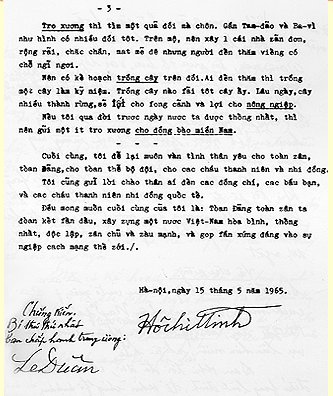 - 3 -
Tro xương thì tìm một quả đồi mà chôn. Gần Tam-đảo và Ba-vì
như hình có nhiều đồi tốt. Trên mộ, nên xây 1 cái nhà zản đơn,
rộng rãi, chắc chắn, mát mẻ để những người đến thăm viếng có
chỗ ngỉ ngơi.
Nên có kế hoạch trồng cây trên đồi. Ai đến thăm thì trồng
một cây làm kỷ niệm. Trồng cây nào fải tốt cây ấy. Lâu ngày, cây
nhiều thành rừng, sẽ lợi cho fong cảnh và lợi cho nông ngiệp.
Nếu tôi qua đời trước ngày nước ta được thống nhất, thì
nên gửi một ít tro xương cho đồng bào miền Nam.
- - -
Cuối cùng, tôi để lại muôn vàn tình thân yêu cho toàn zân,
toàn Đảng, cho toàn thể bộ đội, cho các cháu thanh niên và nhi đồng.
Tôi cũng gửi lời chào thân ái đến các đồng chí, các bầu bạn,
và các cháu thanh niên nhi đồng quốc tế.
Điều mong muốn cuối cùng của tôi là: Toàn Đảng toàn zân ta
đoàn kết fấn đấu, xây zựng một nước Việt-Nam hòa bình, thống
nhất, độc lập, zân chủ và zàu mạnh, và góp fần xứng đáng vào sự
ngiệp cách mạng thế zới./.
Hà-nội, ngày 15 tháng 5 năm 1965.
Chứng kiến.
Bí thư thứ nhất
Ban chấp hành trung ương:
Lê Duẩn
Hồ Chí Minh